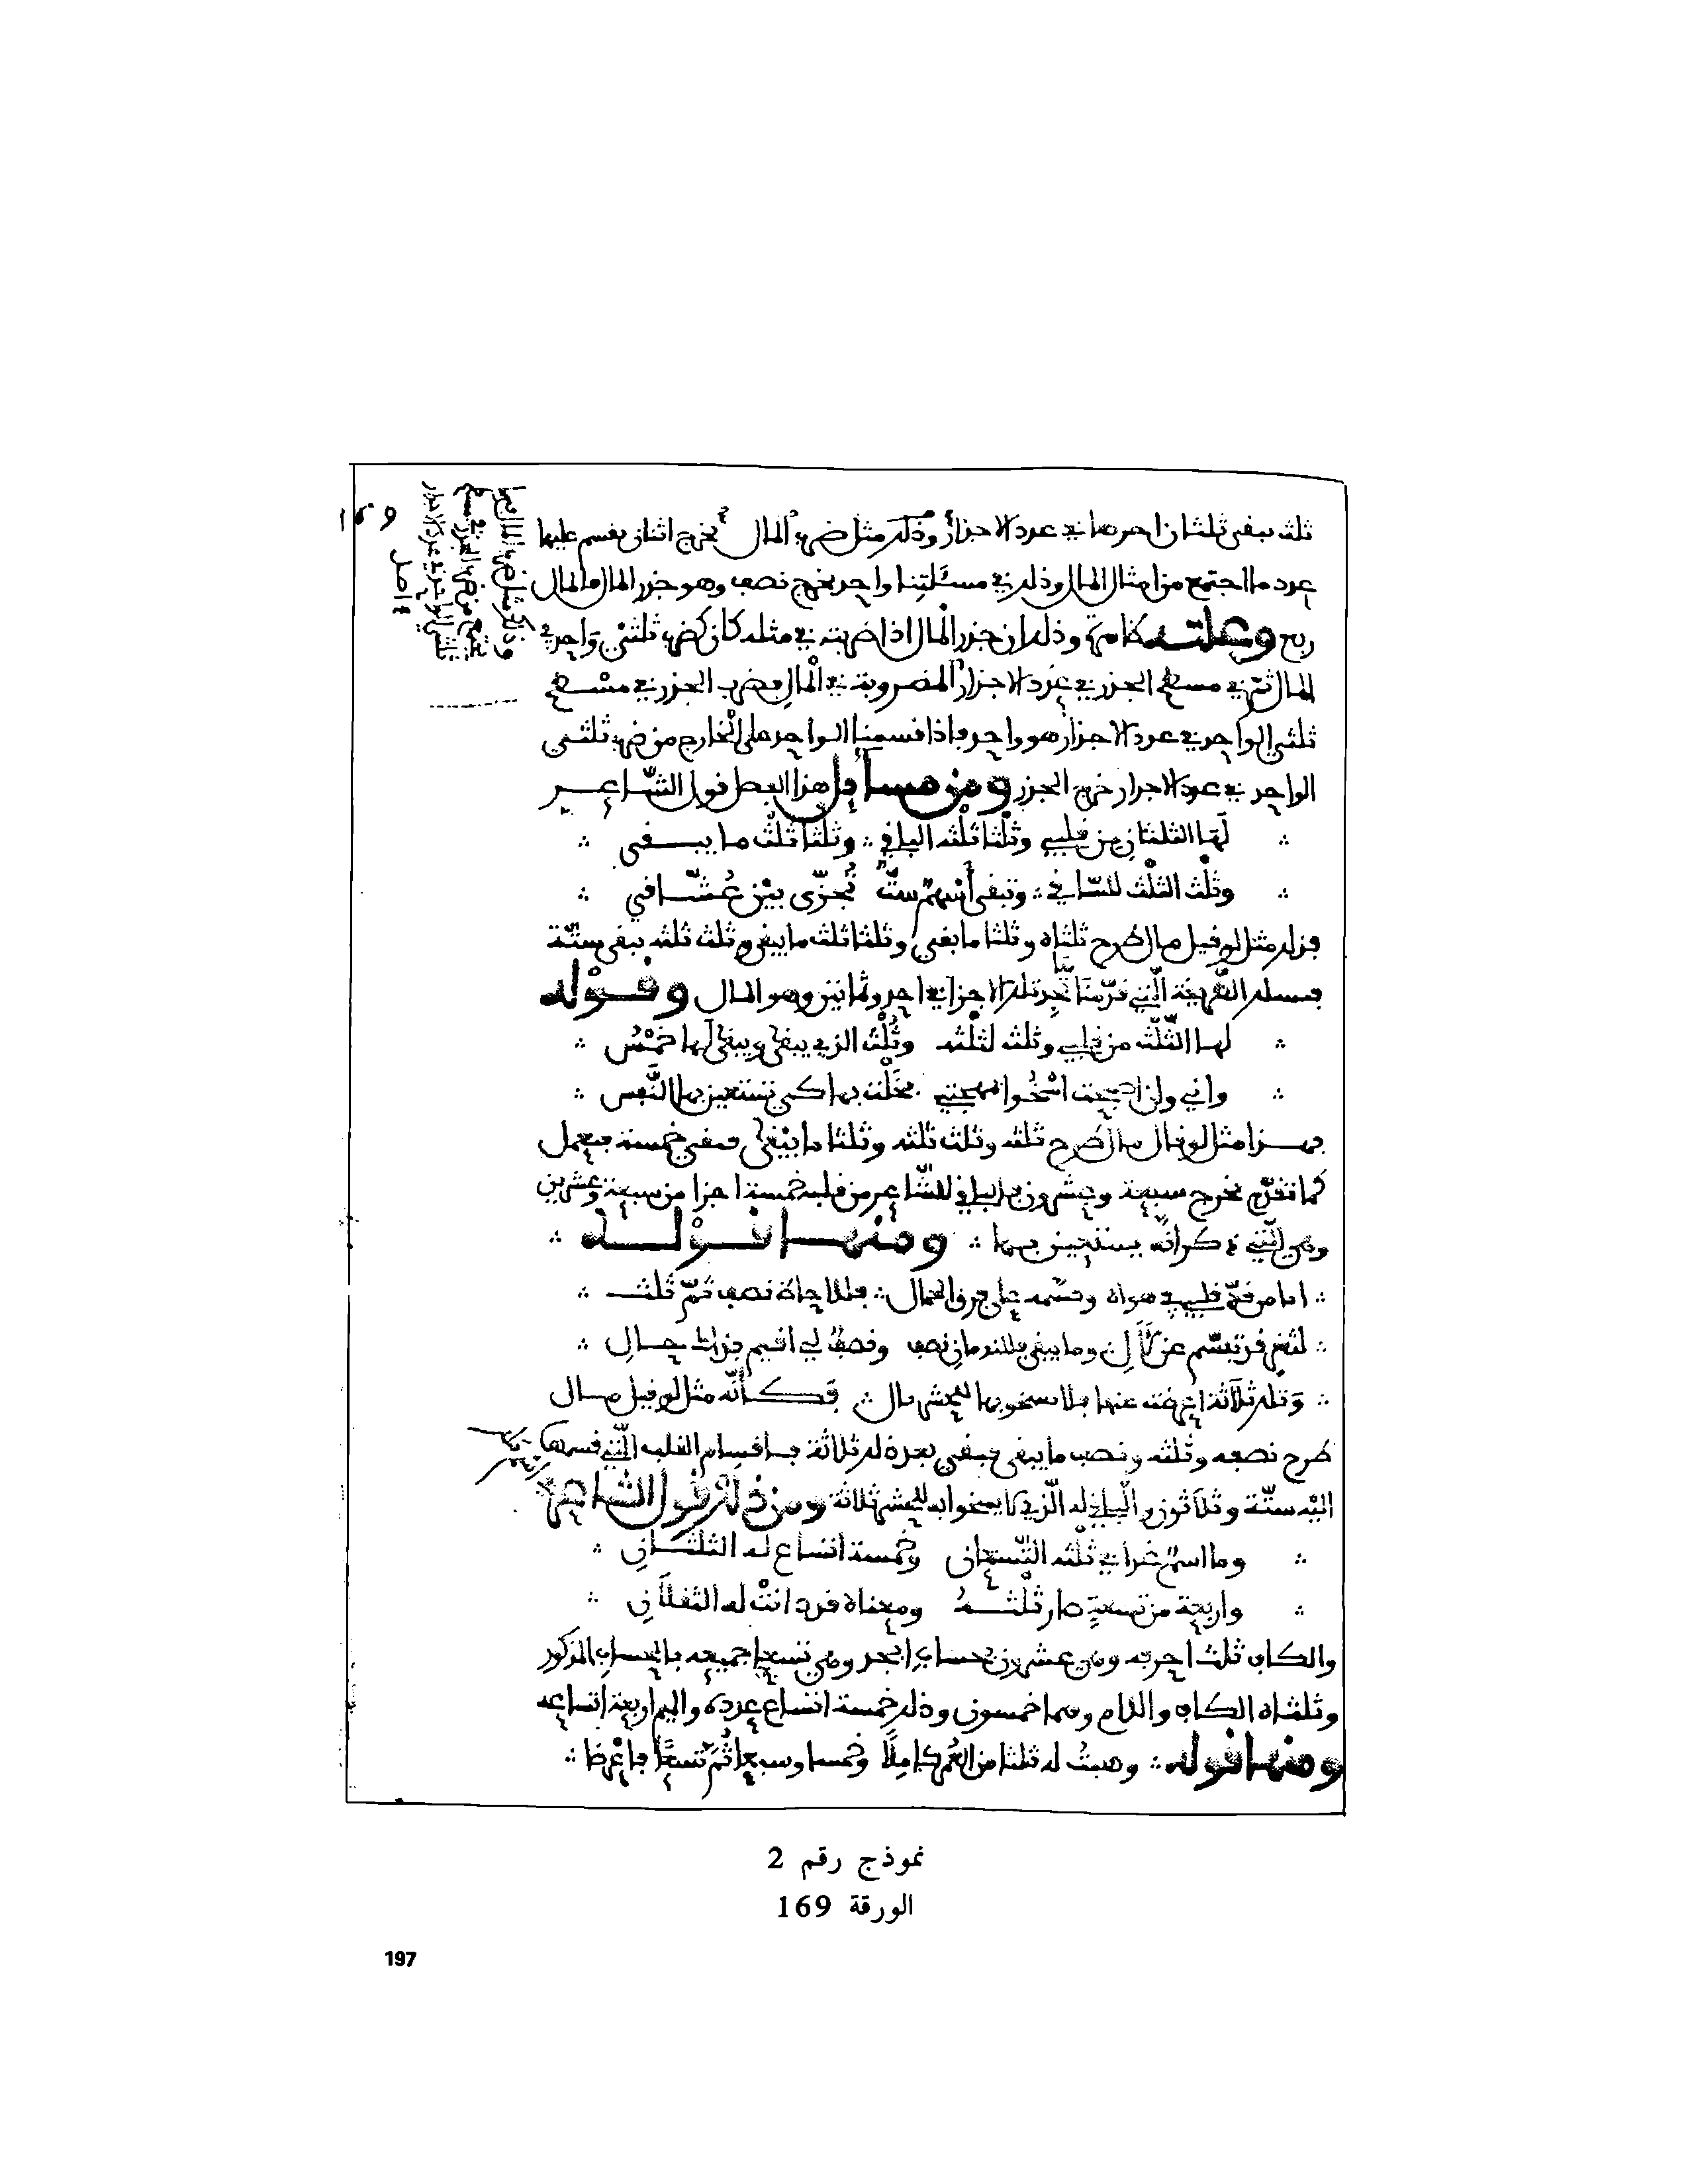 ثلث يبقى ثلثان احدهما في عدد الاجذار وذلك مثل ضرب المال يخرج اثنان يقسم عليها
عدد ما اجتمع من امثال المال وذلك في مسئلتنا واحد يخرج نصف وهو جذر المال والمال
ربع وعلته ظاهرة وذلك ان جذر المال اذا ضربته في مثله كان كضرب ثلثي واحد في
المال ثم في مسطح الجذر في عدد الاجذار المضروبة في المال فضرب الجذر في مسطح
ثلثي الواحد في عدد الاجذار هو واحد فاذا قسمنا الواحد على الخارج من ضرب ثلثي
الواحد في عدد الاجذار خرج الجذر ومن مسائل هذا الفصل قول الشاعر
لها الثلثان من قلبي وثلثا ثلثه الباقي وثلثا ثلث ما يبقى
وثلث الثلث للساقي وتبقى أسهم ست تجزى بين عشاقي
فذلك مثل لو قيل مال طرح ثلثاه وثلثا ما بقي وثلثا ثلث ما يبقى وثلث ثلثه يبقى ستة
فسلك الطريقة التي قدمنا تجد تلك الاجزاء احد وثمانين وهو المال وقوله
لها الثلث من قلبي وثلث لثلثه وثلث الذي يبقى ويبقى لها خمس
واني وان اصبحت اسخوا بمهجتي بخلت بها كي تستعين بها النفس
فهذا مثل لو قال مال طرح ثلثه وثلث ثلثه وثلثا ما يبقى فبقي خمسة فيعمل
كما تقدم يخرج سبعة وعشرون فالباقي للشاعر من قلبه خمسة اجزا من سبعة وعشرين
وهي التي ذكر انه يستعين بها ومنها قوله
اما من قلبي في هواه وقسمه على فرق الجمال فللاجاة نصف ثم ثلث
لثغر قد تبسم عن لآل وما يبقى فللندمان نصف ونصف لي اقيم بذاك حال
وتلك ثلاثة اعرضت عنها فلا اسخو بها للعيش بال فكأنه مثل لو قيل مال
طرح نصفه وثلثه ونصف ما يبقى فبقي بعد ذلك ثلاثة فاقسام القلب التي قسمها
اليه ستة وثلاثون والباقي له الذي لا يسخوا به للعيش ثلاثة ومن ذلك قول الشاعر
وما اسم غدا في ثلثه التسعان وخمسة اتساع له الثلثان
واربعة من تسعة صار ثلثه ومعناه قد دانت له الثقلان
والكاف ثلث احرفه وهي عشرون بحساب ابجد وهي تسعا جميعه بالحساب المذكور
وثلثاه الكاف واللام وهما خمسون وذلك خمسة اتساع عدده والميم اربعة اتساعه
ومنها قوله وهبت له ثلثا من العمر كاملا وخمسا وسبعا ثم تسعا فاعرضا
نموذج رقم 2
الورقة 169
197